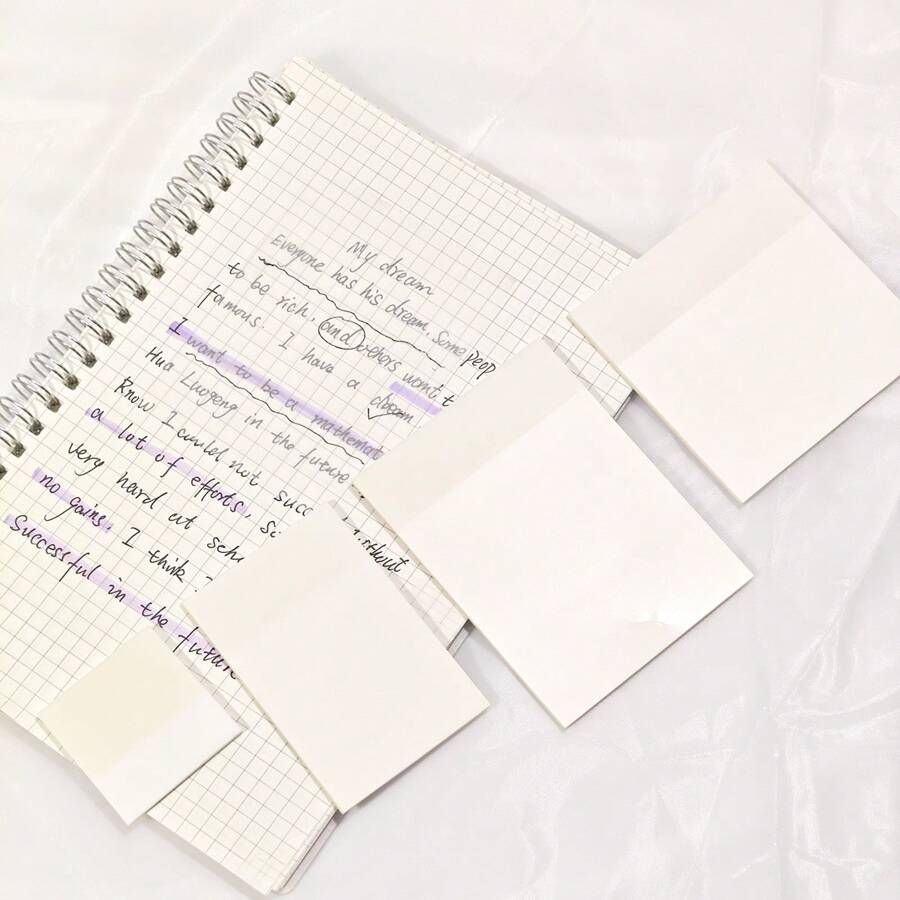 My dream
Everyone has his dream. Some peop
to be rich, and others want t
famous. I have a dream
I want to be a mathemat
Hua Luogeng in the future
Know I could not succ
a lot of efforts. Si
very hard at sch
no gains. I think
Successful in the future